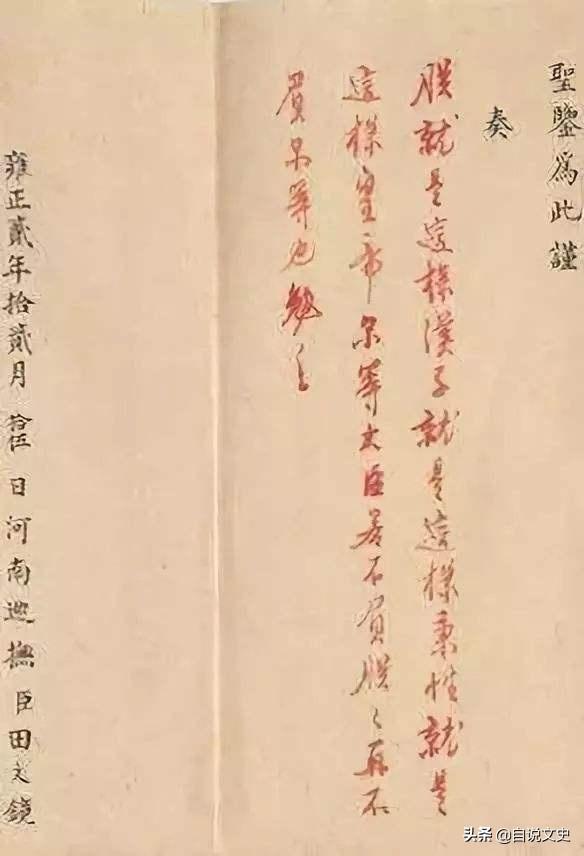 聖鑒爲此謹
奏
朕就是這樣漢子就是這樣秉性就是
這樣皇帝尔等大臣若不負朕〻再不
負尔等也勉之
雍正貳年拾貳月拾伍日河南巡撫臣田文鏡
头条 @自说文史